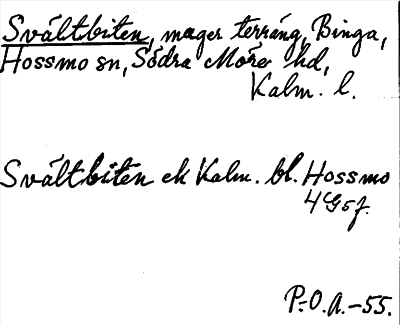 Svältbiten, mager terräng, Binga,
Hossmo sn, Södra Möre hd,
Kalm. l.
Svältbiten ek Kalm. bl. Hossmo
4 G 5 f.
P.O.A.-55.